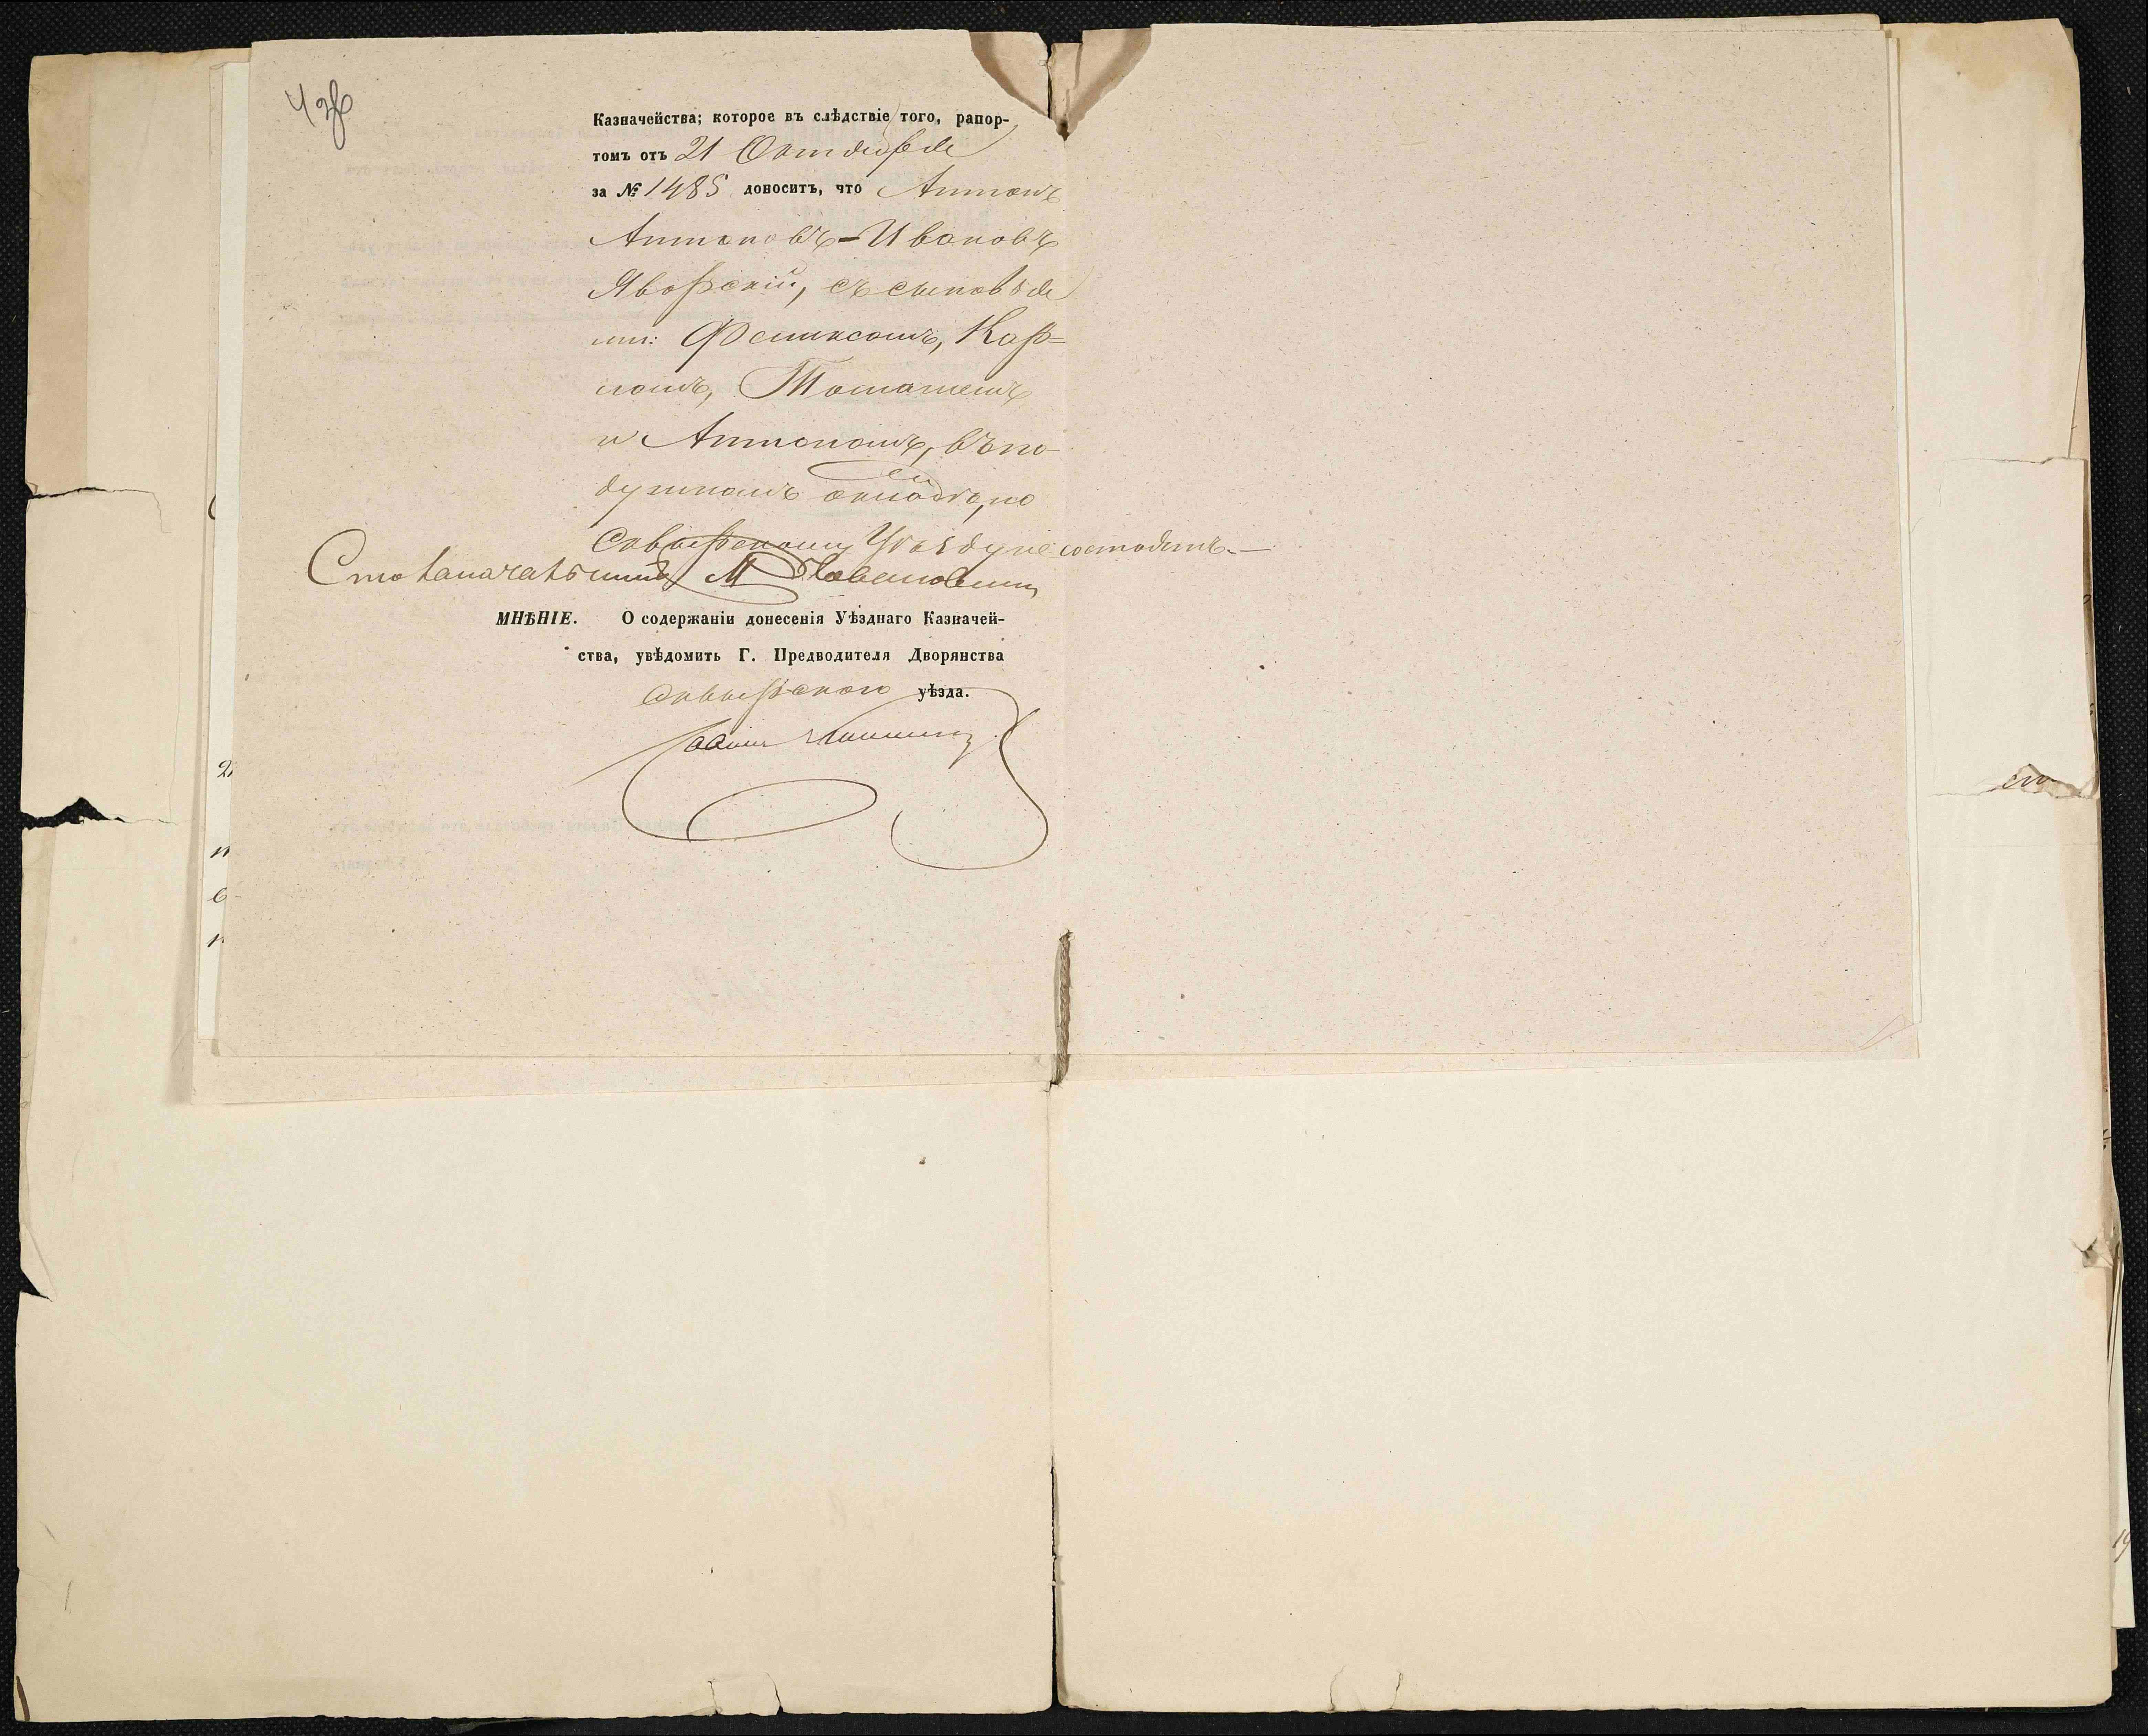 Казначейства; которое въ слѣдствіе того, рапор-
томъ отъ 21 Октября
за № 1485 доноситъ, что Антонъ
Антоновъ-Ивановъ
Яворскій, съ сыновья
ми: Феликсомъ, Кар-
ломъ, Томашемъ
и Антономъ, въ по
душномъ окладѣ, по
Сквирскому Уѣзду не состоитъ.—
Столоначальникъ М
МНѢНІЕ. О содержаніи донесенія Уѣзднаго Казначей-
ства, увѣдомить Г. Предводителя Дворянства
Сквирского уѣзда.